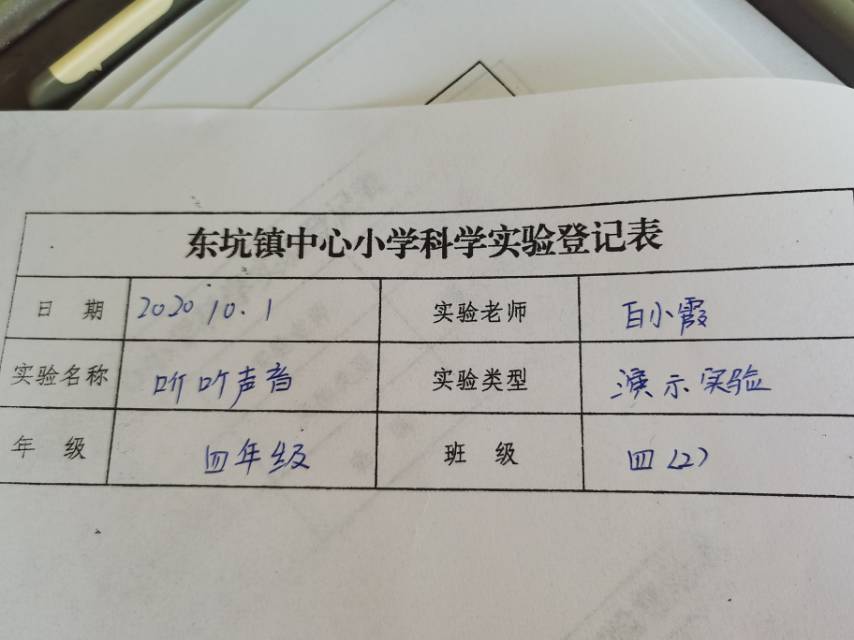 东坑镇中心小学科学实验登记表
日 期 2020 10.1 实验老师 白小霞
实验名称 听听声音 实验类型 演示实验
年 级 四年级 班 级 四(2)